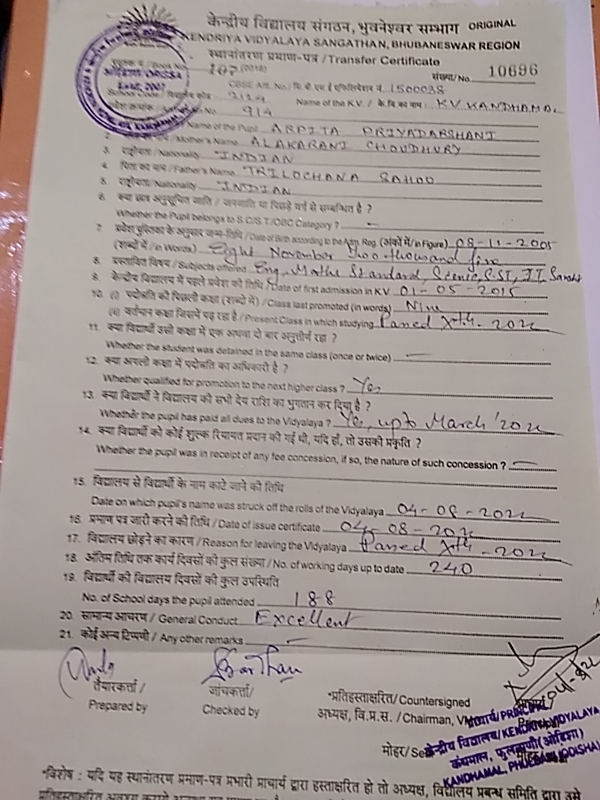 केन्द्रीय विद्यालय संगठन, भुवनेश्वर सम्भाग ORIGINAL
KENDRIYA VIDYALAYA SANGATHAN, BHUBANESWAR REGION
स्थानांतरण प्रमाण-पत्र / Transfer Certificate
107 (2018) संख्या/No. 10696
CBSE Aff. No./ 1500038
2124 Name of the K.V. / के.वि.का नाम : K.V. KANDHAMAL
914
Name of the Pupil ARPITA PRIYADARSHANI
2. Mother's Name ALAKARANI CHOUDHURY
3. राष्ट्रीयता / Nationality INDIAN
4. पिता का नाम / Father's Name TRILOCHANA SAHOO
5. राष्ट्रीयता / Nationality INDIAN
6. क्या छात्र अनुसूचित जाति / जनजाति या पिछड़े वर्ग से सम्बन्धित है ?
Whether the Pupil belongs to S.C/S.T./OBC Category ? —
7. प्रवेश पुस्तिका के अनुसार जन्म-तिथि / Date of Birth according to the Adm. Reg. (अंकों में / in Figure) 08-11-2005
(शब्दों में / in Words) Eight November Two thousand five
8. प्रस्तावित विषय / Subjects offered Eng, Maths Standard, Science, S.ST, IT, Sansk
9. केन्द्रीय विद्यालय में पहले प्रवेश की तिथि / Date of first admission in K.V. 01-05-2015
10. (i) पदोन्नति की पिछली कक्षा (शब्दों में) / Class last promoted (in words) Nine
(ii) वर्तमान कक्षा जिसमें पढ़ रहा है / Present Class in which studying Passed Xth - 2022
11. क्या विद्यार्थी उसी कक्षा में एक अथवा दो बार अनुत्तीर्ण रहा ?
Whether the student was detained in the same class (once or twice) —
12. क्या अगली कक्षा में पदोन्नति का अधिकारी है ?
Whether qualified for promotion to the next higher class ? Yes
13. क्या विद्यार्थी ने विद्यालय की सभी देय राशि का भुगतान कर दिया है ?
Whether the pupil has paid all dues to the Vidyalaya ? Yes, upto March '2022
14. क्या विद्यार्थी को कोई शुल्क रियायत प्रदान की गई थी, यदि हाँ, तो उसकी प्रकृति ?
Whether the pupil was in receipt of any fee concession, if so, the nature of such concession ? —
15. विद्यालय से विद्यार्थी के नाम काटे जाने की तिथि
Date on which pupil's name was struck off the rolls of the Vidyalaya 04-08-2022
16. प्रमाण पत्र जारी करने की तिथि / Date of issue certificate 04-08-2022
17. विद्यालय छोड़ने का कारण / Reason for leaving the Vidyalaya Passed Xth - 2022
18. अंतिम तिथि तक कार्य दिवसों की कुल संख्या / No. of working days up to date 240
19. विद्यार्थी की विद्यालय दिवसों की कुल उपस्थिति
No. of School days the pupil attended 188
20. सामान्य आचरण / General Conduct Excellent
21. कोई अन्य टिप्पणी / Any other remarks —
तैयारकर्त्ता / जांचकर्त्ता / *प्रतिहस्ताक्षरित / Countersigned
Prepared by Checked by अध्यक्ष, वि.प्र.स. / Chairman, प्राचार्य/PRINCIPAL
मोहर/ केन्द्रीय विद्यालय/KENDRIYA VIDYALAYA
कंधमाल, फुलबाणी(ओडिशा)
KANDHAMAL, PHULBANI(ODISHA)
*विशेष : यदि यह स्थानांतरण प्रमाण-पत्र प्रभारी प्राचार्य द्वारा हस्ताक्षरित हो तो अध्यक्ष, विद्यालय प्रबन्ध समिति द्वारा उसे